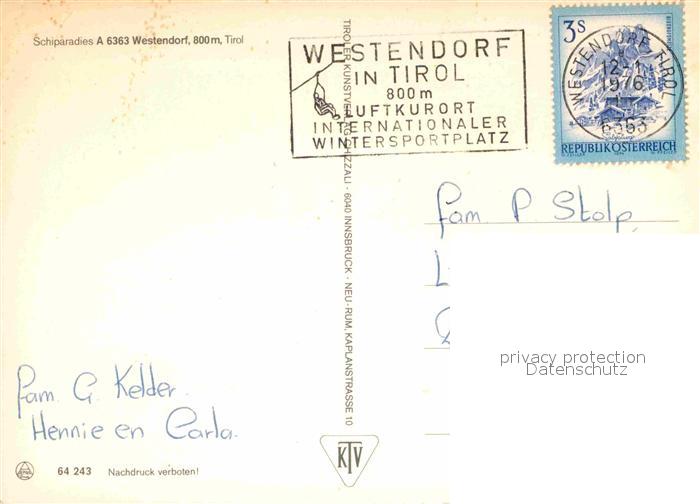 Schiparadies A 6363 Westendorf, 800 m, Tirol
WESTENDORF
IN TIROL
800 m
LUFTKURORT
INTERNATIONALER
WINTERSPORTPLATZ
3S
WESTENDORF TIROL
12.-1
1976
6363
REPUBLIK ÖSTERREICH
TIROLER KUNSTVERLAG CHIZZALI · 6040 INNSBRUCK - NEU-RUM, KAPLANSTRASSE 10
fam. P Stolp,
privacy protection
Datenschutz
fam. G. Kelder.
Hennie en Carla.
KTV
64 243 Nachdruck verboten!